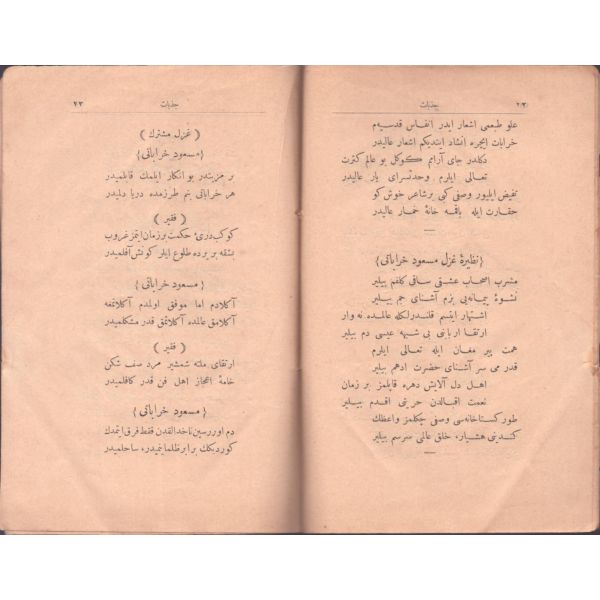 جذبات
علو طبعمی اشعار ایدر انفاس قدسیهم
خرابات ایچره انشاد ایتدیکم اشعار عالیدر
دکلدر جای آرامم کوکل بو عالم کثرت
تعالی ایلرم وحدتسرای یار عالیدر
تفیض ایلیور وصفی کبی بر شاعر خوش کو
حقارت ایله باقمه خانهٔ خمار عالیدر
﴿ نظیرهٔ غزل مسعود خراباتی ﴾
مشرب اصحاب عشقی ساقی کلفم بیلیر
نشوهٔ پیمانه‌یی بزم آشنای جم بیلیر
اشتهار ایتسم قلندرلکله عالمده نه وار
ارتقا اربابنی بی شبهه عیسی دم بیلیر
همت پیر مغان ایله تعالی ایلرم
قدر می سر آشنای حضرت ادهم بیلیر
اهل دل آلایش دهره قاپلمز بر زمان
نعمت اقبالدن حرینی اقدم بیلیر
طور کستاخانه‌سی وصفی چکلمز واعظك
کندینی هشیار، خلق عالمی سرسم بیلیر
جذبات
٢٣
( غزل مشترك )
﴿ مسعود خراباتی ﴾
بر مزبندر بو انکار ایلمك قابلمیدر
هر خراباتی بنم طرزمده دریا دلمیدر
( فقیر )
کوکب دریٔ حکمت بر زمان ایتمز غروب
بشقه بر برده طلوع ایلر کونش آفلمیدر
﴿ مسعود خراباتی ﴾
آکلادم اما موفق اولمدم آکلاتمغه
آکلامق عالمده آکلاتمق قدر مشکلمیدر
( فقیر )
ارتقای ملته شمشیر مرد صف شکن
خامهٔ اعجاز اهل فن قدر کافلمیدر
﴿ مسعود خراباتی ﴾
دم اوررسین ناخدالقدن فقط فرق ایتمدك
کوردیكك برابر ظلمانیمیدر، ساحلمیدر